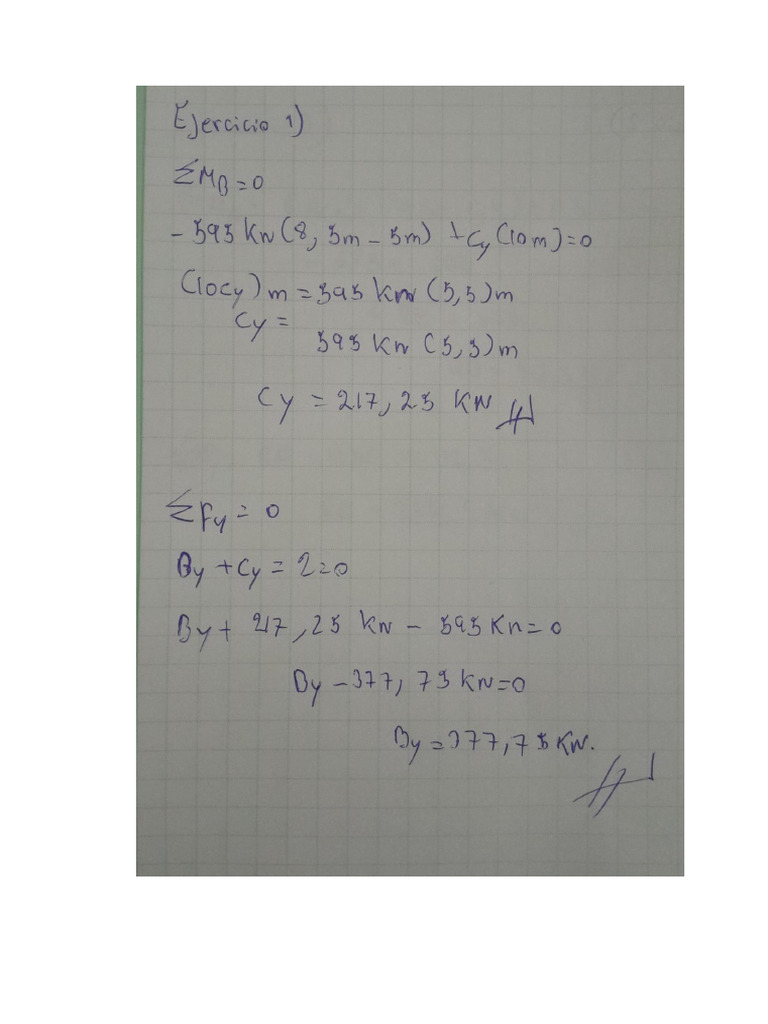 Ejercicio 1)
ΣMB=0
- 595 KN (8,5m - 5m) + Cy (10m) = 0
(10Cy) m = 595 KN (5,5) m
Cy =
595 KN (5,5) m
Cy = 217,25 KN
ΣFy = 0
By + Cy = 2=0
By + 217,25 KN - 595 Kn = 0
By - 377,75 KN=0
By = 377,75 KN.